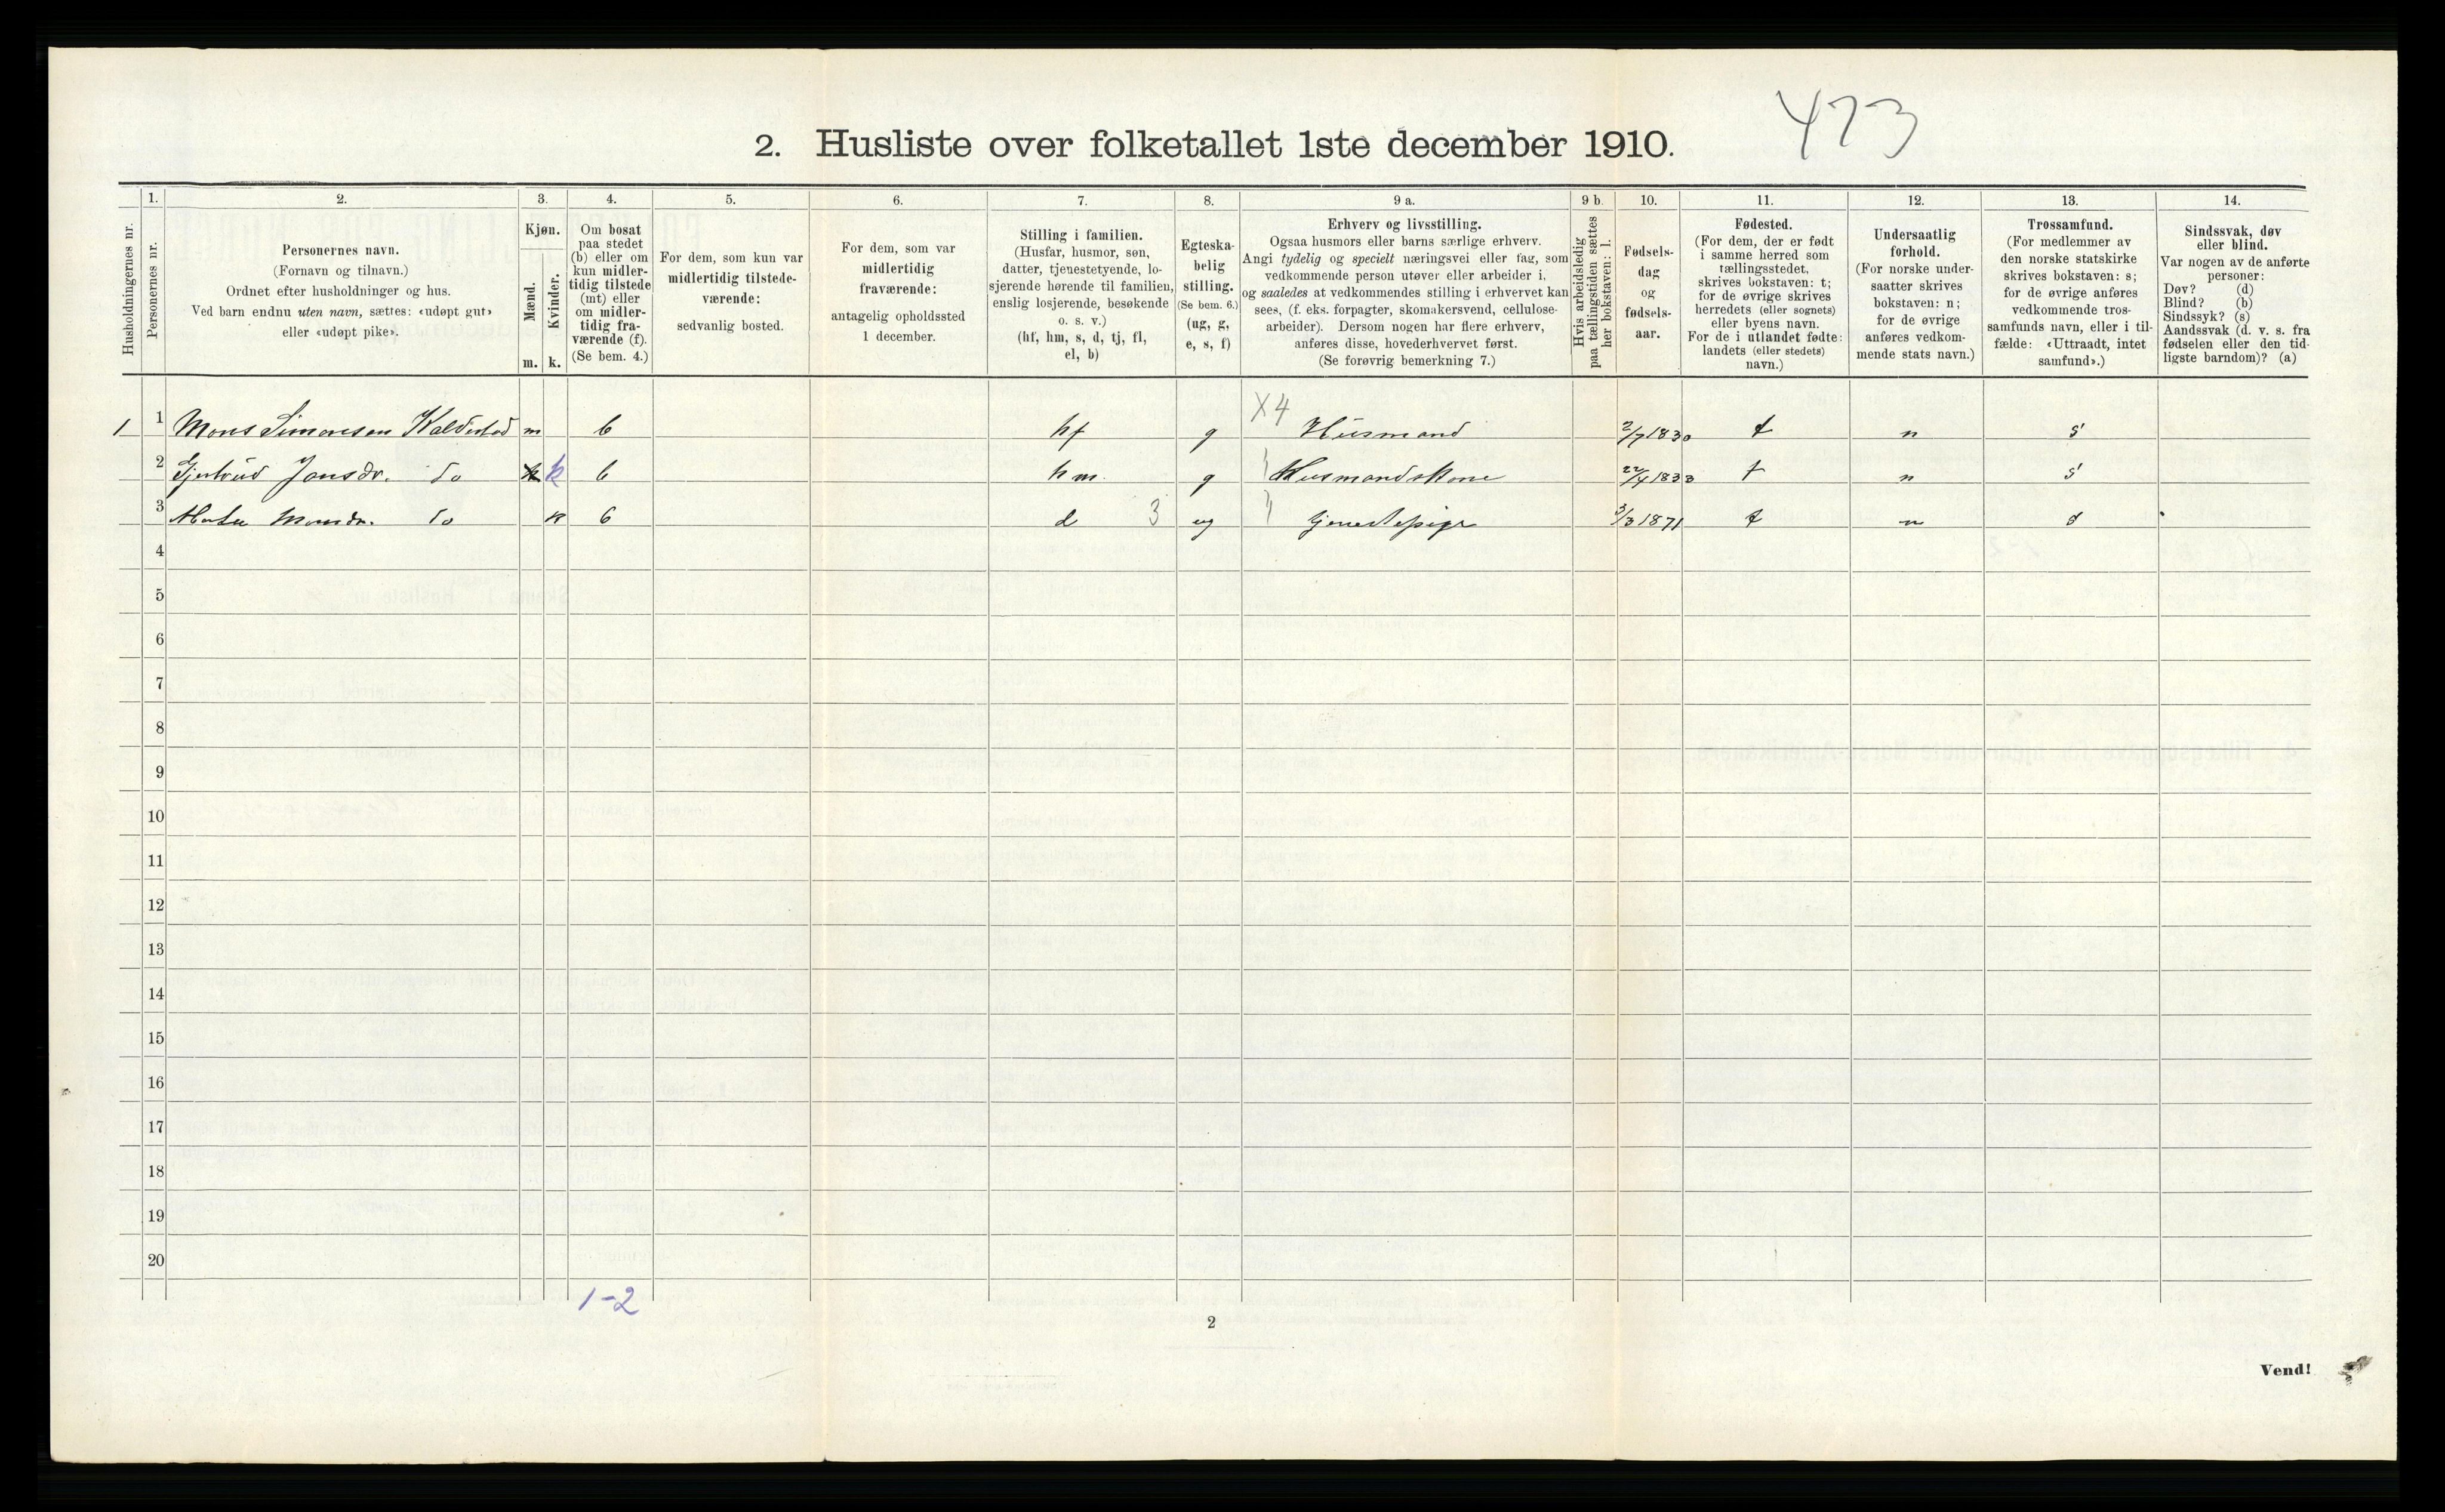 473
2. Husliste over folketallet 1ste december 1910.
Husholdningernes nr.
1.
Personernes nr.
2.
Personernes navn.
(Fornavn og tilnavn.)
Ordnet efter husholdninger og hus.
Ved barn endnu uten navn, sættes: «udøpt gut»
eller «udøpt pike».
3.
Kjøn.
Mænd.
Kvinder.
m. k.
4.
Om bosat
paa stedet
(b) eller om
kun midler-
tidig tilstede
(mt) eller
om midler-
tidig fra-
værende (f).
(Se bem. 4.)
5.
For dem, som kun var
midlertidig tilstede-
værende:
sedvanlig bosted.
6.
For dem, som var
midlertidig
fraværende:
antagelig opholdssted
1 december.
7.
Stilling i familien.
(Husfar, husmor, søn,
datter, tjenestetyende, lo-
sjerende hørende til familien,
enslig losjerende, besøkende
o. s. v.)
(hf, hm, s, d, tj, fl,
el, b)
8.
Egteska-
belig
stilling.
(Se bem. 6.)
(ug, g,
e, s, f)
9 a.
Erhverv og livsstilling.
Ogsaa husmors eller barns særlige erhverv.
Angi tydelig og specielt næringsvei eller fag, som
vedkommende person utøver eller arbeider i,
og saaledes at vedkommendes stilling i erhvervet kan
sees, (f. eks. forpagter, skomakersvend, cellulose-
arbeider). Dersom nogen har flere erhverv,
anføres disse, hovederhvervet først.
(Se forøvrig bemerkning 7.)
9 b.
Hvis arbeidsledig
paa tællingstiden sættes
her bokstaven: l.
10.
Fødsels-
dag
og
fødsels-
aar.
11.
Fødested.
(For dem, der er født
i samme herred som
tællingsstedet,
skrives bokstaven: t;
for de øvrige skrives
herredets (eller sognets)
eller byens navn.
For de i utlandet fødte:
landets (eller stedets)
navn.)
12.
Undersaatlig
forhold.
(For norske under-
saatter skrives
bokstaven: n;
for de øvrige
anføres vedkom-
mende stats navn.)
13.
Trossamfund.
(For medlemmer av
den norske statskirke
skrives bokstaven: s;
for de øvrige anføres
vedkommende tros-
samfunds navn, eller i til-
fælde: «Uttraadt, intet
samfund».)
14.
Sindssvak, døv
eller blind.
Var nogen av de anførte
personer:
Døv? (d)
Blind? (b)
Sindssyk? (s)
Aandssvak (d. v. s. fra
fødselen eller den tid-
ligste barndom)? (a)
X4
1 1 Mons Simonsen Kaldestad m b hf g Husmand 2/7 1830 t n s
2 Gjertrud Jonsdr. do k b hm g Husmandskone 22/4 1833 t n s
3 Monsdr. do k b d 3 ug tjenestepige 3/3 1871 t n s
4
5
6
7
8
9
10
11
12
13
14
15
16
17
18
19
20
1-2
2
Vend!